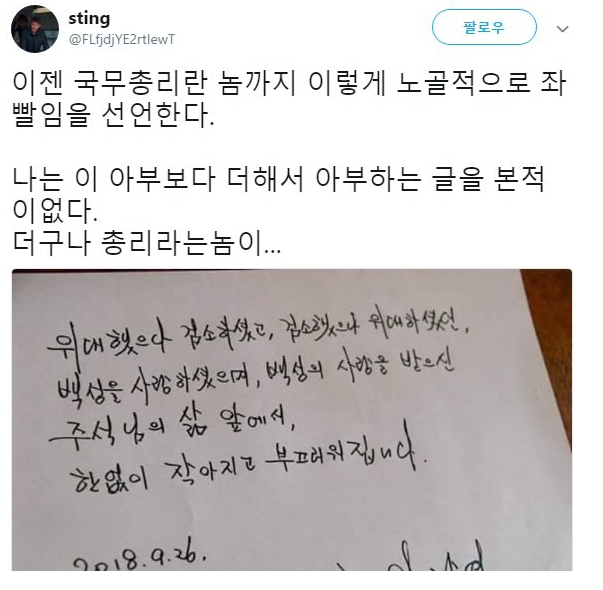 sting
@FLfjdjYE2rtlewT
팔로우
이젠 국무총리란 놈까지 이렇게 노골적으로 좌
빨임을 선언한다.
나는 이 아부보다 더해서 아부하는 글을 본적
이없다.
더구나 총리라는놈이...
위대했으나 검소하셨고, 검소했으나 위대하셨던,
백성을 사랑하셨으며, 백성의 사랑을 받으신
주석님의 삶 앞에서,
한없이 작아지고 부끄러워집니다.
2018.9.26.